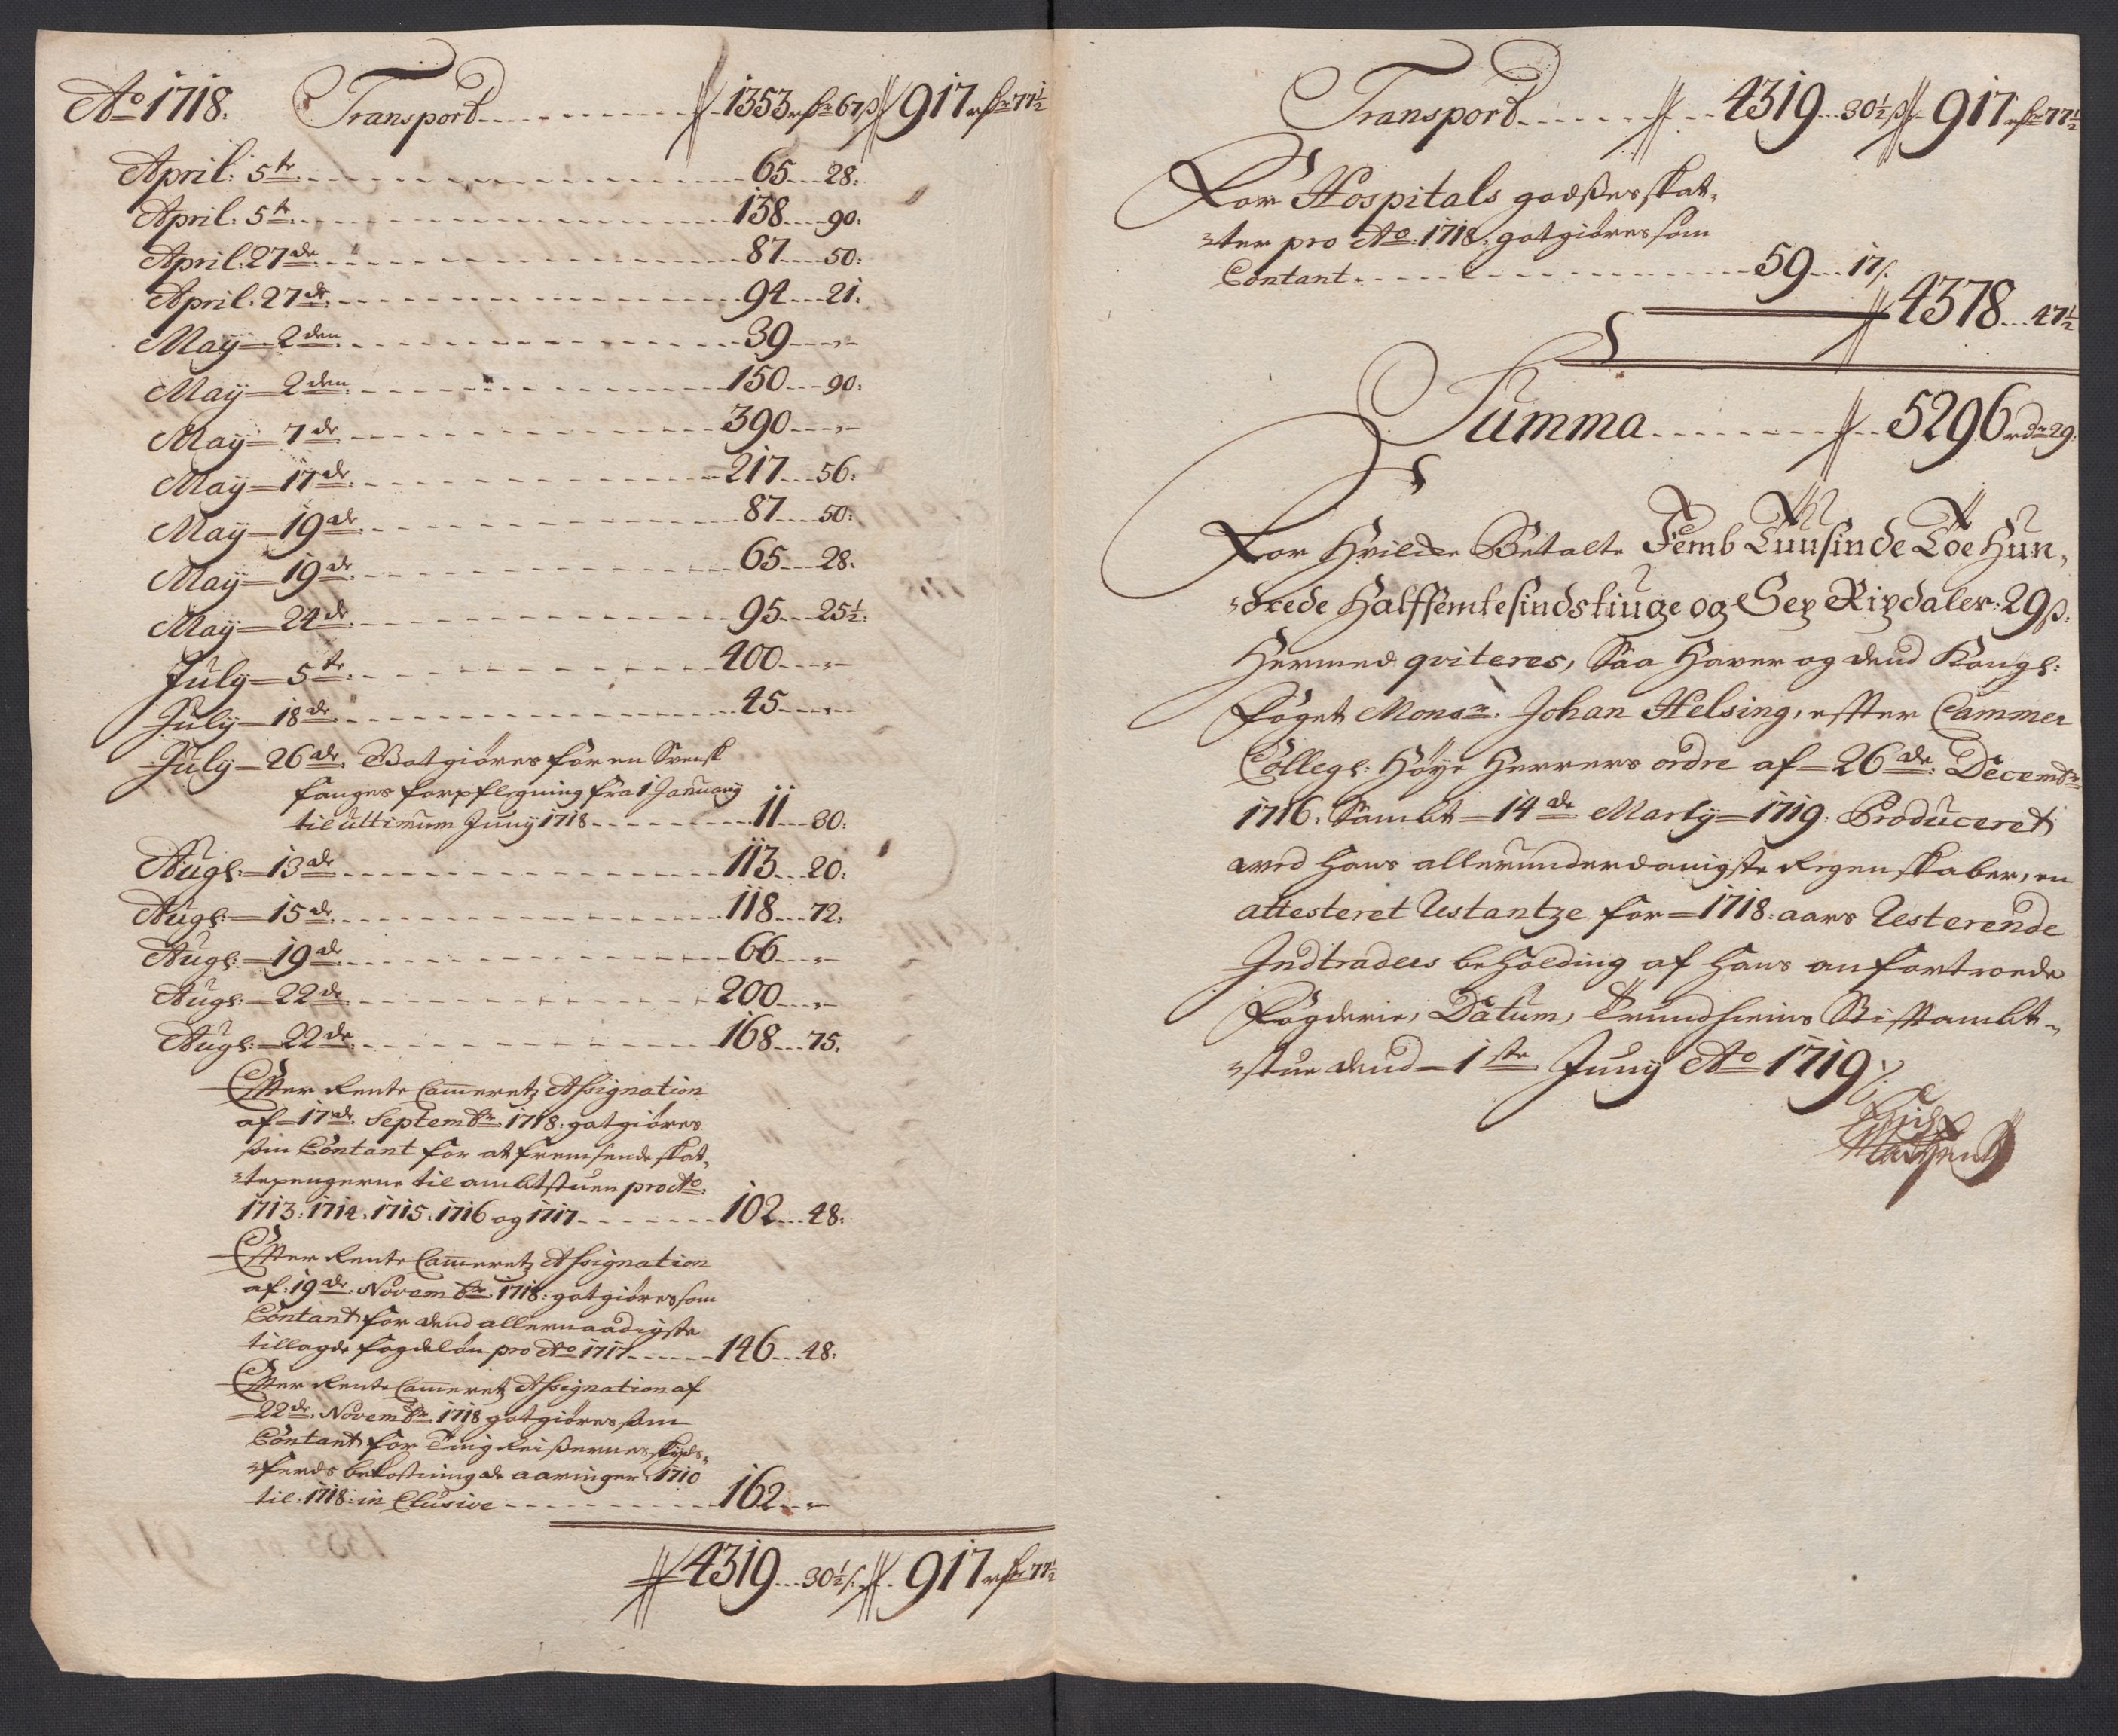 Ao 1718. Transport 1353 rdr 67 ß 917 rdr 77½
April: 5te 65 28:
April: 5te 138 90:
April: 27de 87 50:
April: 27de 94 21:
May 2den 39
May 2den 150 90:
May 7de 390
May 17de 217 56:
May 19de 87 50:
May 19de 65 28:
May 24de 95 25½:
July 5te 400
July 18de 45
July 26de: Gotgiøres for en Svensk
fanges forpflegning fra 1 January
til ultimum Juny 1718 11 30:
Augl: 13de 113 20:
Augl: 15de 118 72:
Augl: 19de 66
Augl: 22de 200
Augl: 22de 168 75.
Effter Rente Cam̄eretz Assignation
af 17de Septembr: 1718: gotgiøres
som Contant for at fremsende skat-
tepengerne til ambtstuen pro Ao:
1713: 1714: 1715: 1716 og 1717 102 48:
Effter Rente Cam̄eretz Assignation
af: 19de: Novembr: 1718: gotgiøres som
Contant for dend allernaadigste
tillagde fogdeløn pro Ao 1717 146 48:
Effter Rente Cam̄eretz Assignation af
22de: Novembr: 1718 gotgiøres som
Contant for Ting Reißernes skyds-
ferds bekostning de aaringer: 1710
til: 1718: in Clusive 162
4319 30½ ß. 917 rdr 77½
Transport 4319 30½ ß 917 rdr 77½
For Hospitals godßes skat-
ter pro Ao: 1718: gotgiøres som
Contant 59 17 ß.
4378 47½
Summa 5296 rdr 29:
For Hvilcke Betalte Femb Tuusinde Toe Hun-
drede Halffemtesindstiuge og Sex Rixdaler: 29 ß:
Hermed qviteres, Saa Haver og dend Kongl:
Foget Monsr: Johan Helsing, effter Cammer
Collegl: Høye Herrers ordre af 26de: Decembr:
1716. Sambt 14de Marty 1719: Produceret
ved hans allerunderdanigste Regenskaber, en
attesteret Restantze for 1718: aars Resterende
Indtraders beholding af hans anfortroede
Fogderie, Datum, Trundhiems Stifftambt-
stue dend 1ste Juny Ao 1719